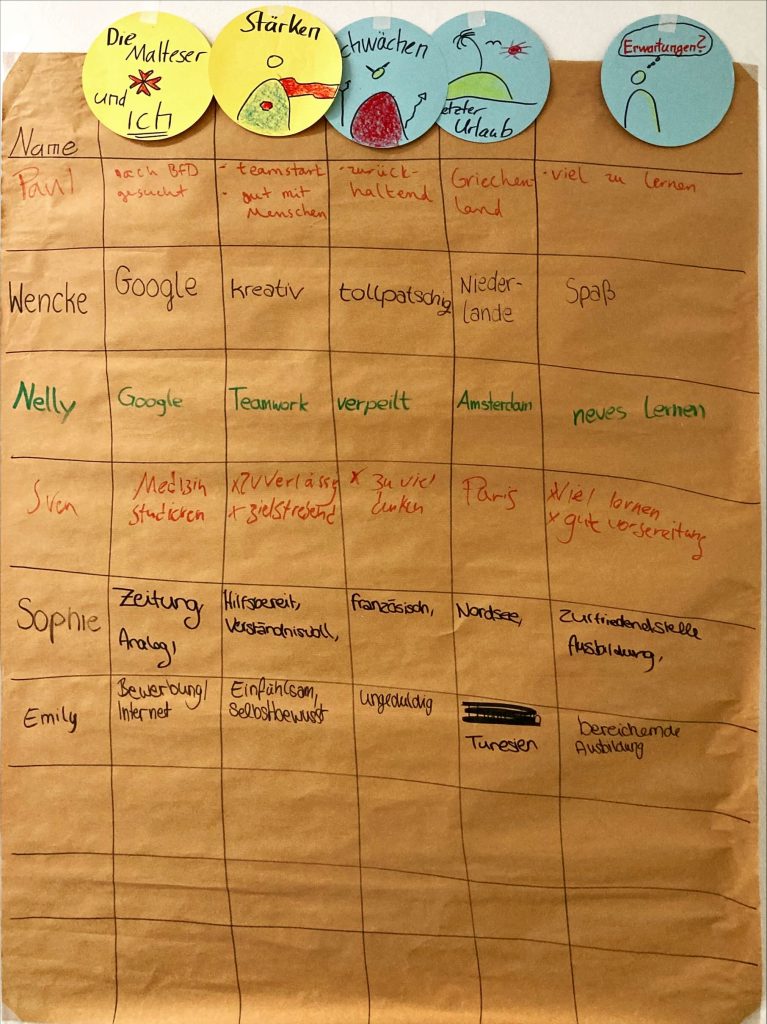 Die
Malteser
und
ich
Stärken
chwächen
etzter
Urlaub
Erwartungen?
Name
Paul
nach BFD
gesucht
- teamstark
- gut mit
Menschen
- zurück-
haltend
Griechen-
land
- viel zu lernen
Wencke
Google
kreativ
tollpatschig
Nieder-
lande
Spaß
Nelly
Google
Teamwork
verpeilt
Amsterdam
neues Lernen
Sven
Medizin
studieren
x Zuverlässig
x zielstrebend
x zu viel
denken
Paris
x Viel lernen
x gute vorbereitung
Sophie
Zeitung
Analog,
Hilfsbereit,
Verständnisvoll,
französisch,
Nordsee,
Zurfriedendstelle
Ausbildung,
Emily
Bewerbung/
Internet
Einfühlsam,
Selbstbewusst
ungeduldig
Tunesien
bereichernde
Ausbildung